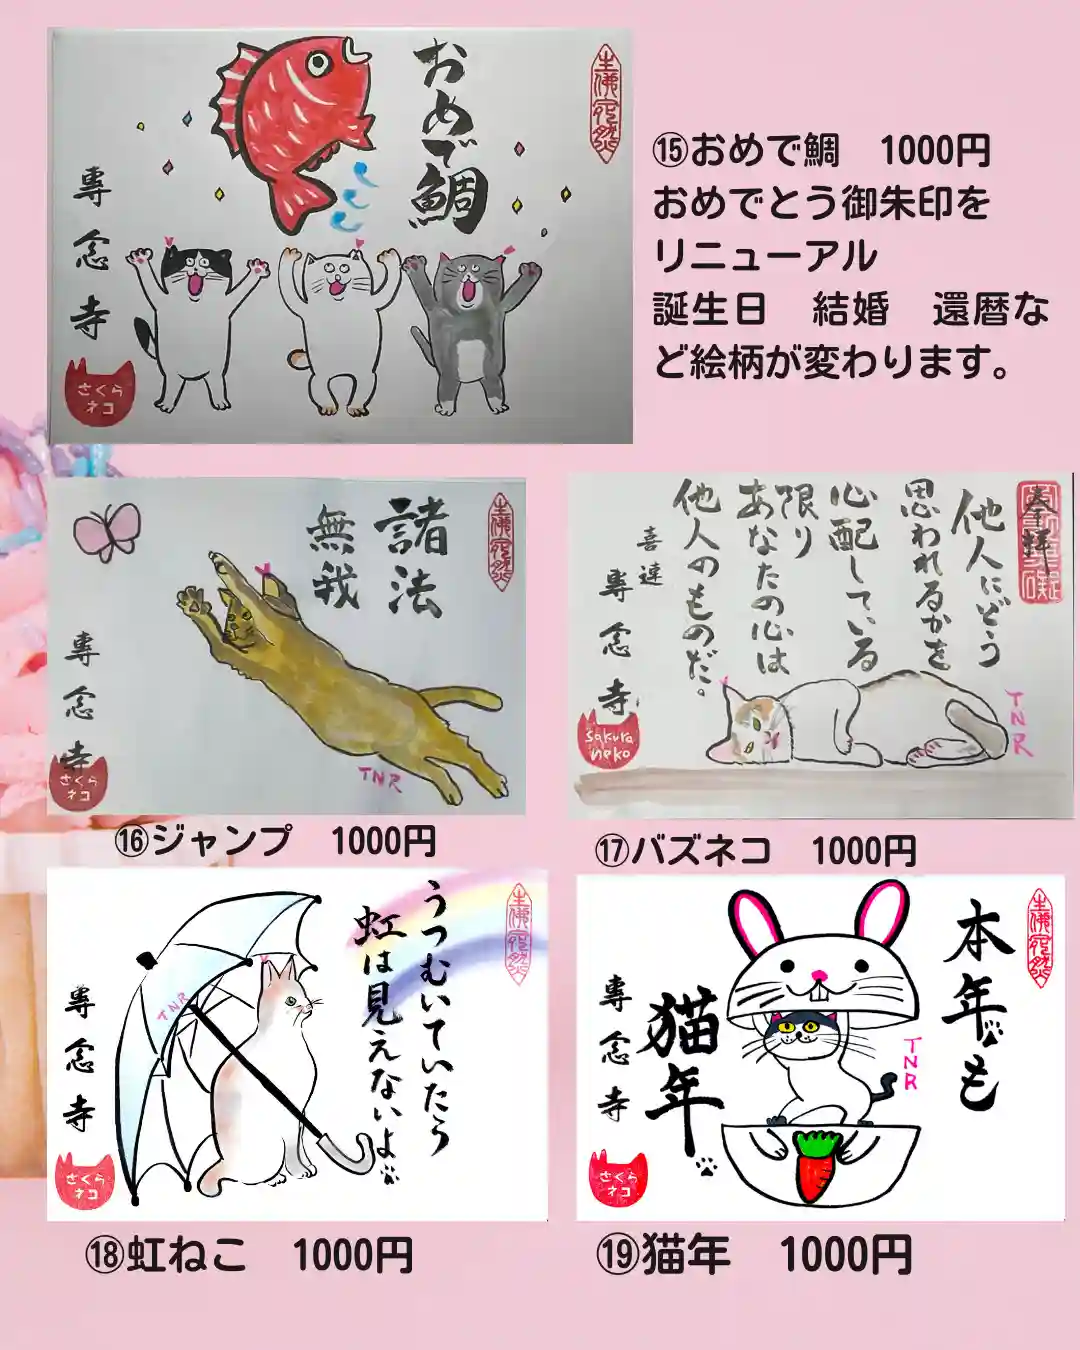 おめで鯛
専念寺
さくら
ネコ
生佛宛然
⑮おめで鯛　1000円
おめでとう御朱印を
リニューアル
誕生日　結婚　還暦な
ど絵柄が変わります。
諸法
無我
専念寺
さくら
ネコ
TNR
生佛宛然
⑯ジャンプ　1000円
奉拝
他人にどう
思われるかを
心配している
限り
あなたの心は
他人のものだ。
喜連
専念寺
sakura
neko
TNR
⑰バズネコ　1000円
うつむいていたら
虹は見えないよ
専念寺
さくら
ネコ
TNR
生佛宛然
⑱虹ねこ　1000円
本年も
猫年
専念寺
さくら
ネコ
TNR
生佛宛然
⑲猫年　1000円